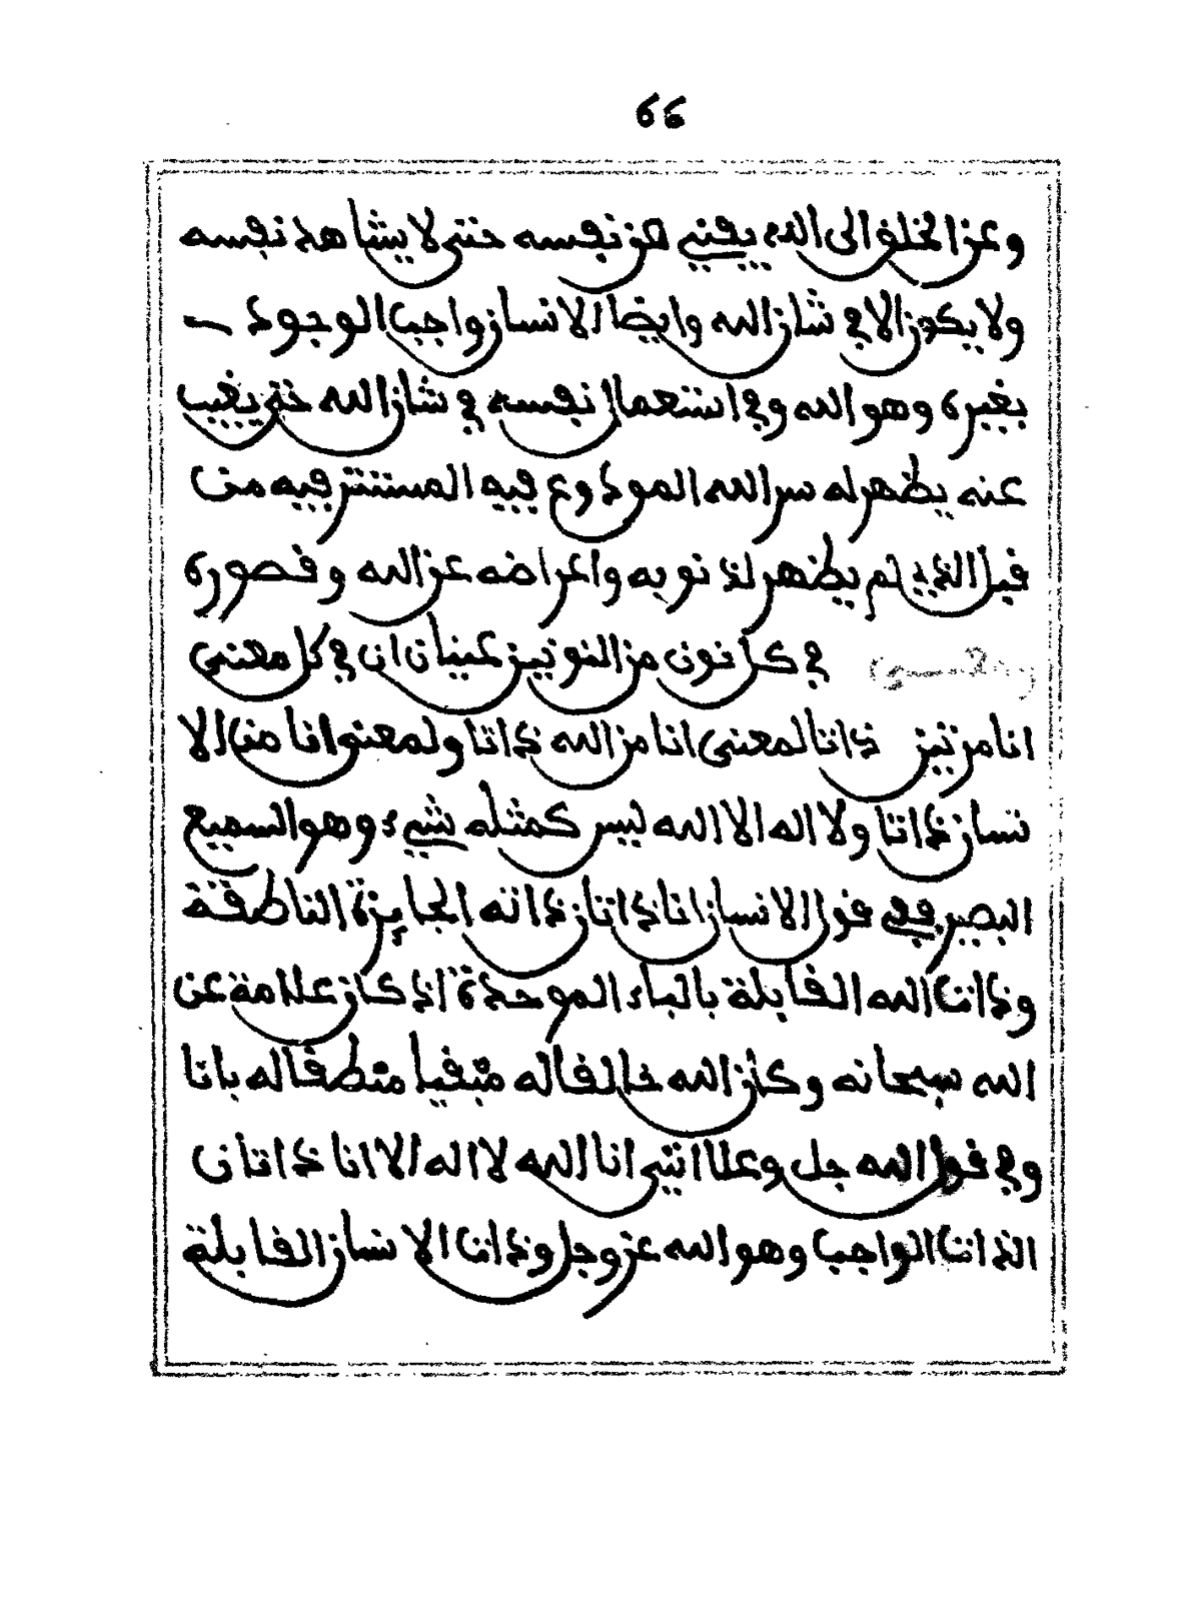 66
وعن الخلق الى الله يفنى من نفسه حتى لا يشاهد نفسه
ولا يكون الا في شان الله وايضا الانسان واجب الوجود
بغيره وهو الله وفي استعمال نفسه في شان الله حتى يغيب
عنه يظهر له سر الله المودوع فيه المستتر فيه من
قبل الذي لم يظهر لذنوبه واعراضه عن الله وقصوره
في كل نون من النونين عينان ان في كل معنى
انا من نين ذاتا لمعنى انا من الله ذاتا ولمعنى انا من الا
نسان ذاتا ولا اله الا الله ليس كمثله شيء وهو السميع
البصير ففي قول الانسان انا ذاتان ذاته الجايزة الناطقة
وذات الله القابلة بالباء الموحدة اذ كان علامة عن
الله سبحانه وكان الله خالقا له مبقيا منطقا له بانا
وفي قول الله جل وعلا انني انا الله لا اله الا انا ذاتان
الذات الواجب وهو الله عز وجل وذات الانسان القابلة